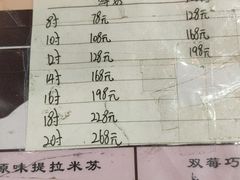 8寸 78元 128元
10寸 108元 168元
12寸 128元 198元
14寸 168元
16寸 198元
18寸 228元
20寸 268元
原味提拉米苏 双莓巧